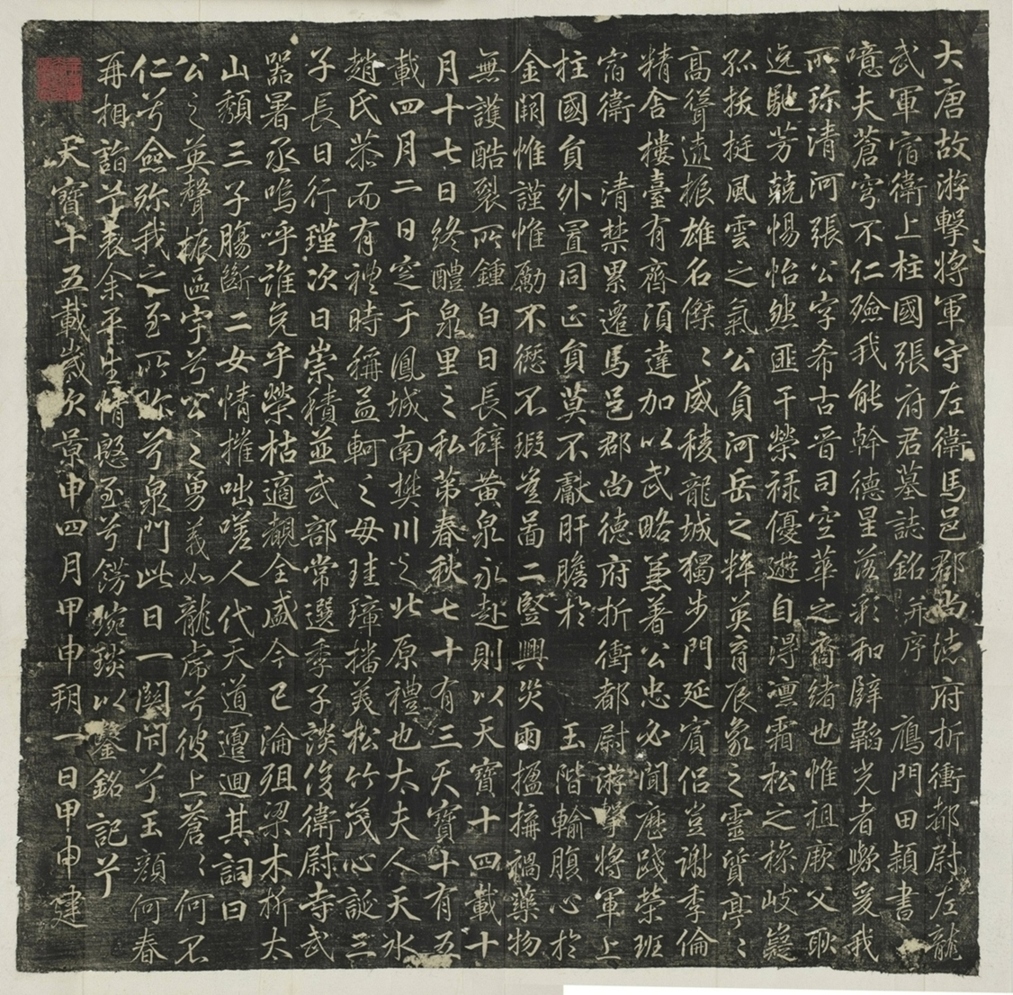 大唐故游擊將軍守左衛馬邑郡尚德府折衝都尉左龍
武軍宿衛上柱國張府君墓誌銘并序 鴈門田穎書
噫夫蒼穹不仁殮我能幹德星落彩和辟韜光者歟爰我
所珎清河張公字希古晉司空華之裔緒也惟祖厥父耿
迄馳芳兢惕怡然匪干榮祿優遊自得凜霜松之操岐嶷
孤拔挺風雲之氣公負河岳之粹英育辰象之靈質亭〻
高聳遠振雄名傑〻威稜龍城獨步門延賓侶豈謝季倫
精舍樓臺有齊須達加以武略兼著公忠必聞歷踐榮班
宿衛 清禁累遷馬邑郡尚德府折衝都尉游擊將軍上
柱國員外置同正員莫不獻肝膽於 玉階輸腹心於
金闕惟謹惟勵不僁不瑕豈啚二豎興災兩楹搆禍藥物
無護酷裂所鍾白日長辞黃泉永赴則以天寶十四載十
月十七日終醴泉里之私第春秋七十有三天寶十有五
載四月二日窆于鳳城南樊川之北原禮也太夫人天水
趙氏恭而有禮時稱孟軻之母珪璋播美松竹茂心誕三
子長日行瑾次日崇積並武部常選季子談俊衛尉寺武
器署丞嗚呼誰免乎榮枯適覩全盛今已淪殂梁木折太
山頹三子腸斷二女情摧咄嗟人代天道邅迴其詞曰
公之英聲振區宇兮公之勇義如龍虎兮彼上蒼〻何不
仁兮殮珎我之至所珎兮泉門此日一闋閇兮玉顏何春
再相詣兮哀余平生情慇至兮鏤琬琰以鏨銘記兮
天寶十五載歲次景申四月甲申朔一日甲申建